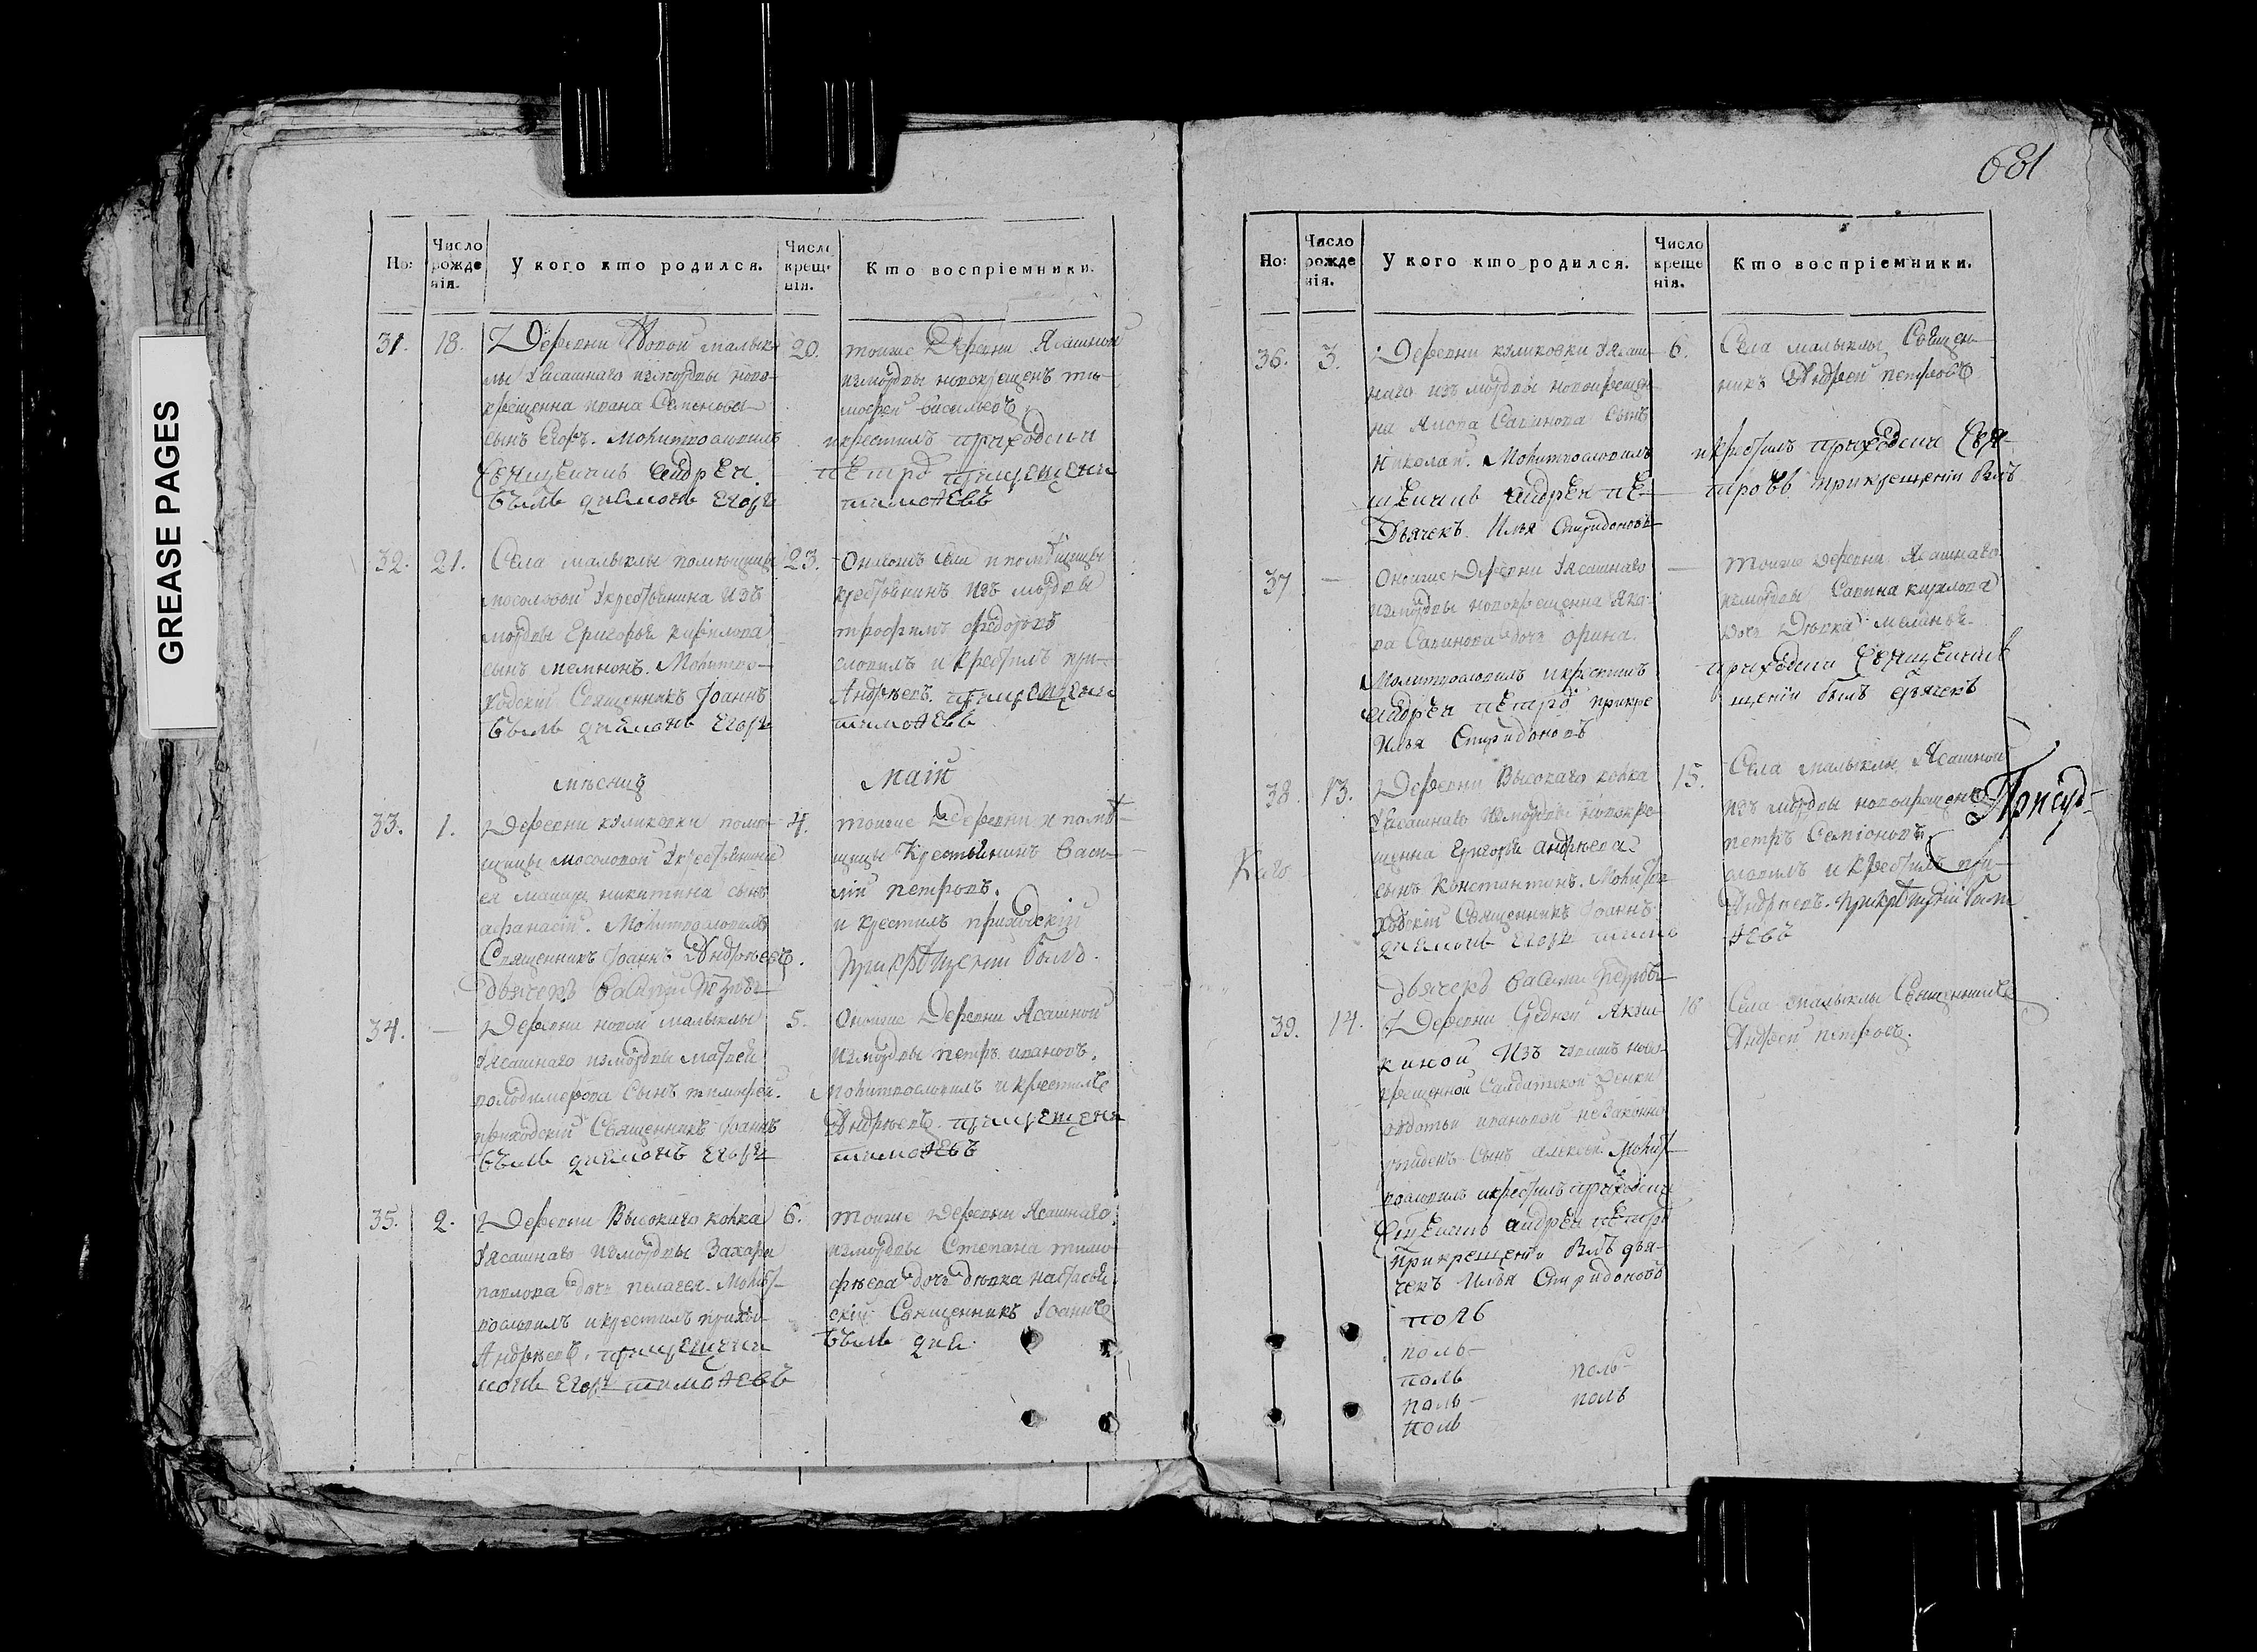 GREASE PAGES
681
Но:
Число рожденія.
У кого кто родился.
Число крещенія.
Кто воспріемники.
31.
18.
Деревни Новой малык
лы Ясашнаго измордвы ново
крещенна ивана Семенова
сынъ Егоръ. Молитвословилъ
Священникъ Андрей
былъ діаконъ Егоръ
20.
тоиже Деревни Ясашной
измордвы новокрещенъ ти
мофей васильевъ
икрестилъ приходски
Петро прикрещени
тимофѣевъ
32.
21.
Села малыклы помещицы
мосоловой крестьянина изъ
мордвы Григорья кирилова
сынъ мемнонъ. Молитво
ходскій Священникъ Іоаннъ
былъ діаконъ Егоръ
23.
Оногожъ села помѣщицы
крестьянинъ изъ мордвы
трофимъ федотовъ
словилъ и крестилъ при
Андреевъ. прикрещени
тимофѣевъ
мѣсяцъ
маій
33.
1.
Деревни куликовки поме
щицы мосоловой крестьянина
ея никитина сынъ
афанасій. Молитвословилъ
Священникъ Іоаннъ Андреевъ.
дьячекъ Василий Петровъ
4.
тоиже Деревни и помѣ
щицы Крестьянинъ Васи
лій петровъ.
и крестилъ приходскій
прикрѣщеніи былъ.
34.
—
Деревни новой малыклы
Ясашнаго измордвы Матвея
володимерова Сынъ тимофей.
приходскій Священникъ Іоаннъ
былъ діаконъ Егоръ
5.
Оноиже Деревни Ясашной
измордвы петръ ивановъ.
Молитвословилъ и крестилъ
Андреевъ. прикрещени
тимофѣевъ
35.
2.
Деревни Высокаго колка
Ясашнаго измордвы Захара
павлова дочь пелагея. Молит
вословилъ икрестилъ приход
Андреевъ. прикрещени
конъ Егоръ тимофѣевъ
6.
тоиже Деревни Ясашнаго
измордвы Степана тимо
фѣева дочь дѣвка настасья
скій Священникъ Іоаннъ
былъ діа
Но:
Число рожденія.
У кого кто родился.
Число крещенія.
Кто воспріемники.
36.
3.
Деревни куликовки Ясаш
наго изъ мордвы новокрещен
на Савинова Сынъ
Николай. Молитвословилъ
щенникъ Андрей Пе
Дьячекъ Илья Спиридоновъ
6.
Села малыклы Священ
никъ Андрей петровъ
икрестилъ приходски Свя
тровъ прикрещеніи былъ
37
—
Оноиже Деревни Ясашнаго
измордвы новокрещенна Яко
ва Савинова дочь Орина.
Молитвословилъ икрестилъ
Андрей Петро прикре
Илья Спиридоновъ
—
тоиже Деревни Ясашнаго
измордвы Савина кирилова
дочь Дѣвка меланья
приходски Священникъ
щеніи былъ дьячекъ
38.
13.
Деревни Высокаго колка
Ясашнаго измордвы новокре
щенна Григорья Андрѣева
сынъ Константинъ. Молитво
ходскій Священникъ Іоаннъ
діаконъ Егоръ тимо
дьячекъ Василий Петровъ
15.
Села малыклы Ясашной
изъ мордвы новокрещенъ
петръ Семіоновъ
словилъ и крестилъ при
Андреевъ. прикрѣщеніи былъ
фѣевъ
39.
14.
Деревни Средней Якуш
киной Изъ ново
крещенной Салдатской женки
ивановой незаконно
сынъ алексей. Молит
вословилъ икрестилъ приходски
Священникъ Андрей Петро
прикрещеніи былъ дья
чекъ Илья Спиридоновъ
16
Села малыклы Священникъ
Андрей петровъ.
поль
поль
поль поль
поль поль
поль